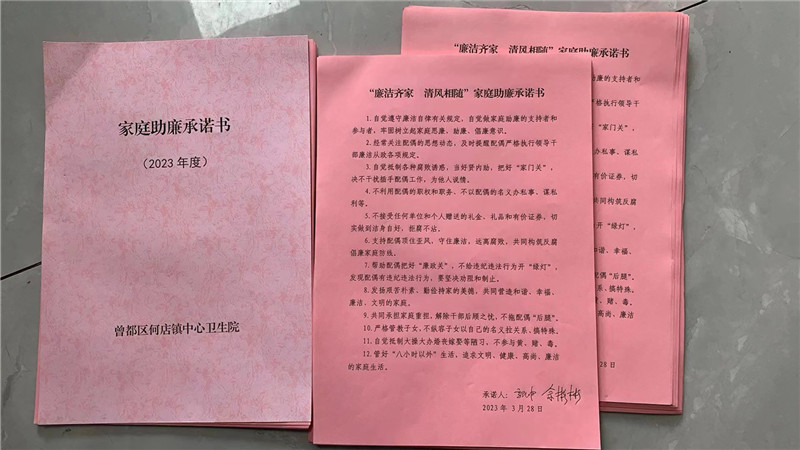 家庭助廉承诺书
（2023 年度）
曾都区何店镇中心卫生院
“廉洁齐家　清风相随”家庭助廉承诺书
1.自觉遵守廉洁自律有关规定，自觉做家庭助廉的支持者和
参与者，牢固树立起家庭思廉、助廉、倡廉意识。
2.经常关注配偶的思想动态，及时提醒配偶严格执行领导干
部廉洁从政各项规定。
3.自觉抵制各种腐败诱惑，当好贤内助，把好“家门关”，
决不干扰插手配偶工作，为他人说情。
4.不利用配偶的职权和职务、不以配偶的名义办私事、谋私
利等。
5.不接受任何单位和个人赠送的礼金、礼品和有价证券，切
实做到洁身自好，拒腐不沾。
6.支持配偶顶住歪风，守住廉洁，远离腐败，共同构筑反腐
倡廉家庭防线。
7.帮助配偶把好“廉政关”，不给违纪违法行为开“绿灯”，
发现配偶有违纪违法行为，要坚决劝阻和制止。
8.发扬艰苦朴素、勤俭持家的美德，共同营造和谐、幸福、
廉洁、文明的家庭。
9.共同承担家庭重担，解除干部后顾之忧，不拖配偶“后腿”。
10.严格管教子女，不纵容子女以自己的名义拉关系、搞特殊。
11.自觉抵制大操大办婚丧嫁娶等陋习，不参与黄、赌、毒。
12.管好“八小时以外”生活，追求文明、健康、高尚、廉洁
的家庭生活。
承诺人：
2023 年 3 月 28 日
“廉洁齐家　清风相随”家庭助廉承诺书
助廉的支持者和
严格执行领导干
“家门关”，
办私事、谋私
有价证券，切
共同构筑反腐
开“绿灯”，
和谐、幸福、
“后腿”。
搞特殊。
赌、毒。
高尚、廉洁
28 日